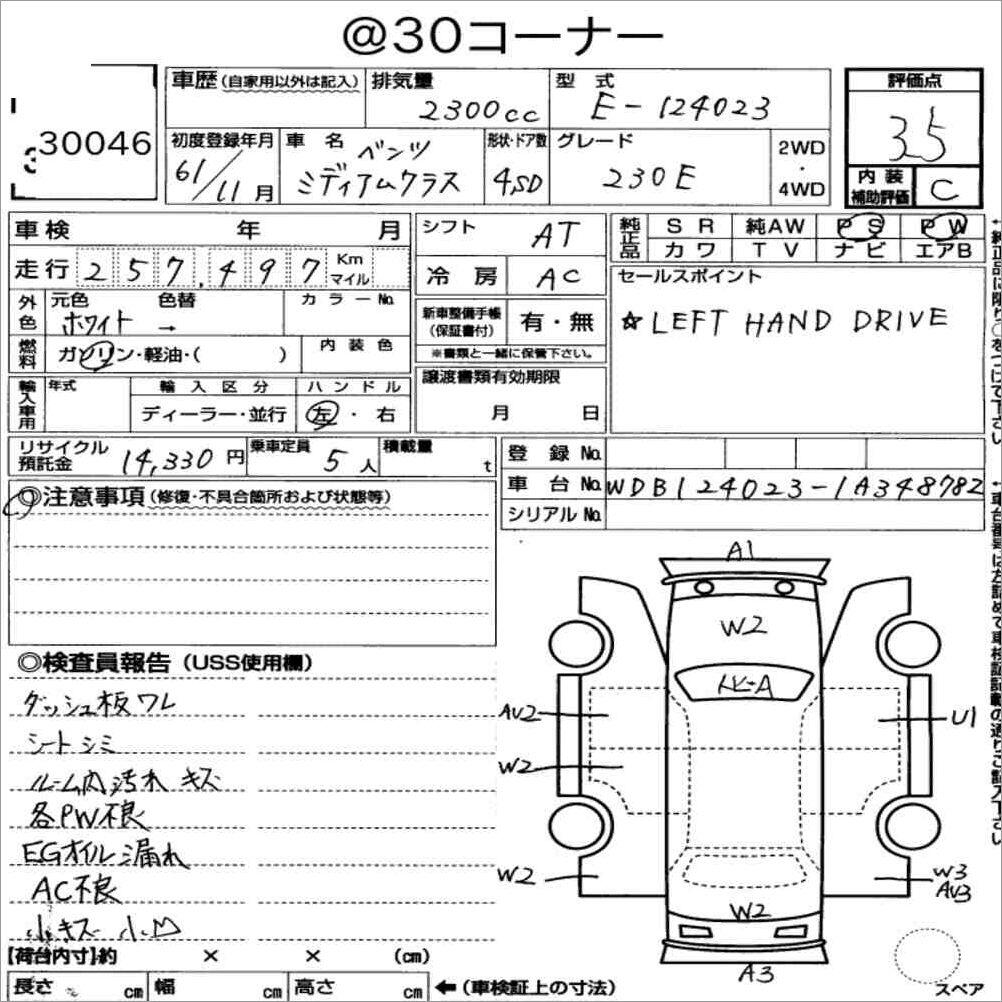 @30コーナー
30046
車歴(自家用以外は記入)
排気量 2300cc
型式 E-124023
評価点 3.5
初度登録年月 61/11月
車名 ベンツ ミディアムクラス
形状・ドア数 4SD
グレード 230E
2WD・4WD
内装補助評価 C
車検 年 月
シフト AT
純正品 SR 純AW PS PW
カワ TV ナビ エアB
走行 257,497 Km マイル
冷房 AC
セールスポイント
☆LEFT HAND DRIVE
外色 元色 ホワイト 色替 → カラーNo.
新車整備手帳(保証書付) 有・無
※書類と一緒に保管下さい。
燃料 ガソリン・軽油・( ) 内装色
輸入車用 年式 輸入区分 ハンドル
ディーラー・並行 左・右
譲渡書類有効期限 月 日
リサイクル預託金 14,330円
乗車定員 5人
積載量 t
登録No.
車台No. WDB124023-1A348782
シリアルNo.
◎注意事項(修復・不具合箇所および状態等)
◎検査員報告(USS使用欄)
ダッシュ板ワレ
シートシミ
ルーム内汚れ キズ
各PW不良
EGオイル漏れ
AC不良
小キズ 小凹
【荷台内寸】約 × × (cm)
長さ cm 幅 cm 高さ cm ←(車検証上の寸法)
A1
W2
トビ-A
AV2
U1
W2
W2
W3
AV3
W2
A3
スペア
←純正品に限り○をつけて下さい
←車台番号は左詰めで車検証記載の通りご記入下さい